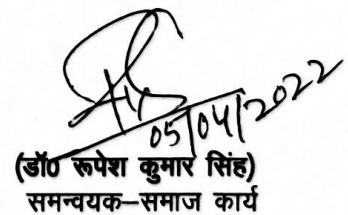 05/04/2022
(डॉ0 रूपेश कुमार सिंह)
समन्वयक–समाज कार्य